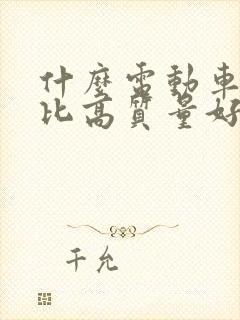 什麼電動車
比高質量好
千允